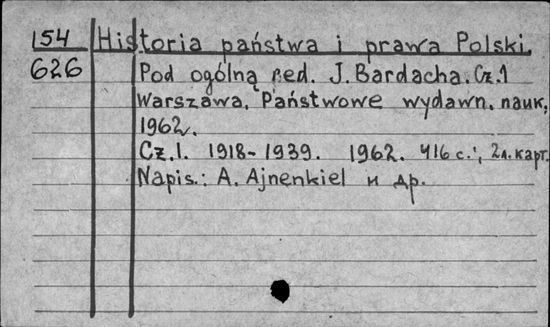 154 Historia państwa i prawa Polski.
626 Pod ogólną red. J. Bardacha. Cz.1
Warszawa, Państwowe wydawn. nauk,
1962.
Cz.1. 1918-1939. 1962. 416 с.; 2л. карт.
Napis.: A. Ajnenkiel и др.